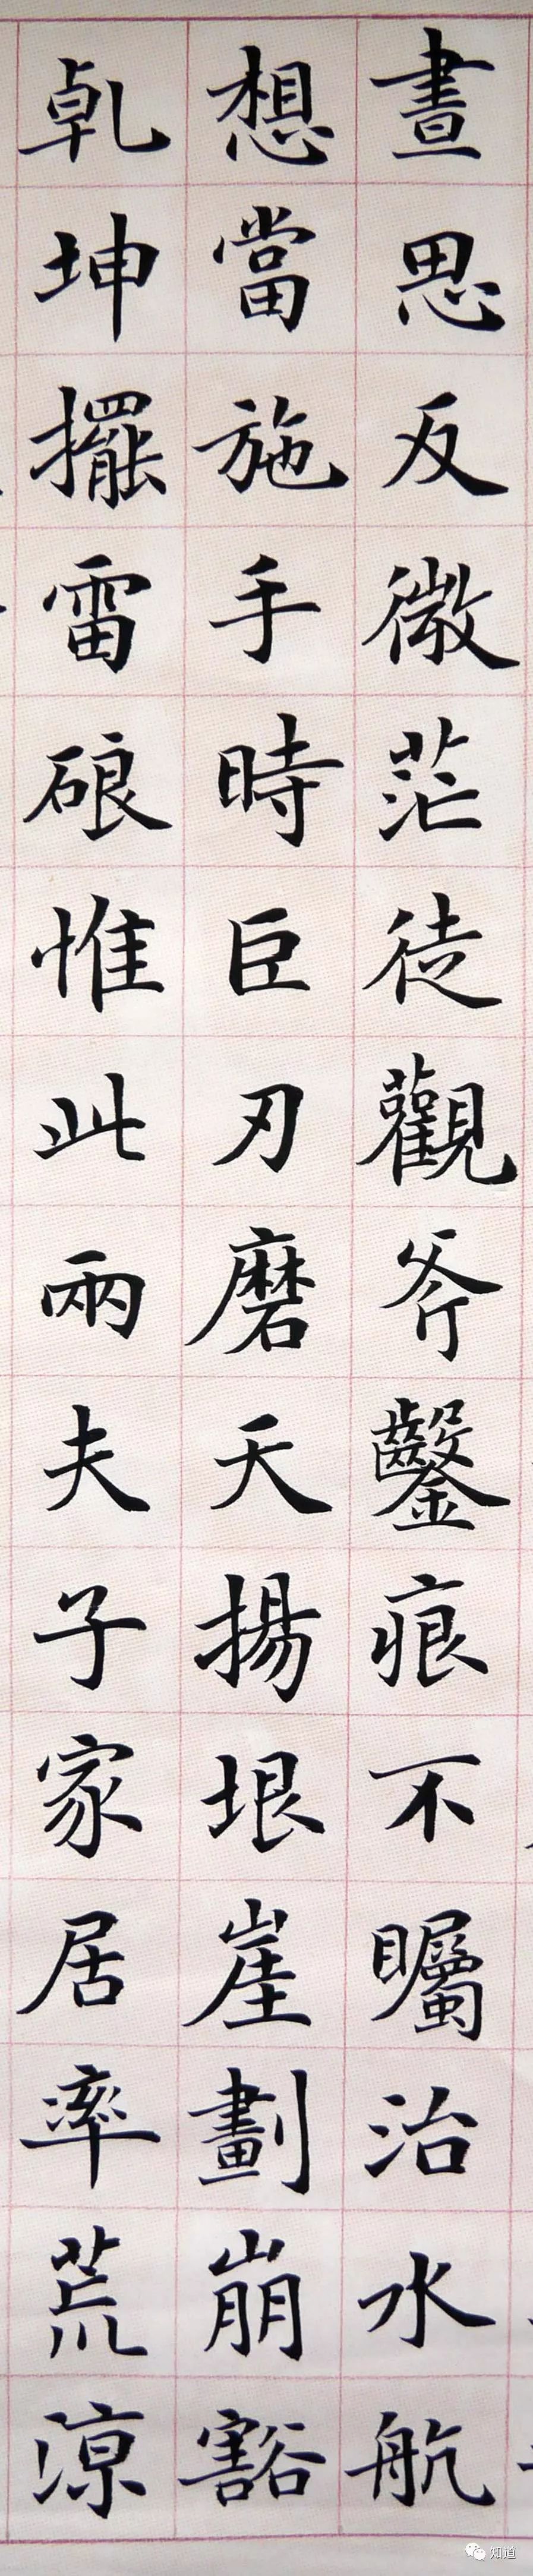 晝思反微茫徒觀斧鑿痕不矚治水航
想當施手時巨刃磨天揚垠崖劃崩豁
乹坤擺雷硠惟此兩夫子家居率荒涼
知道